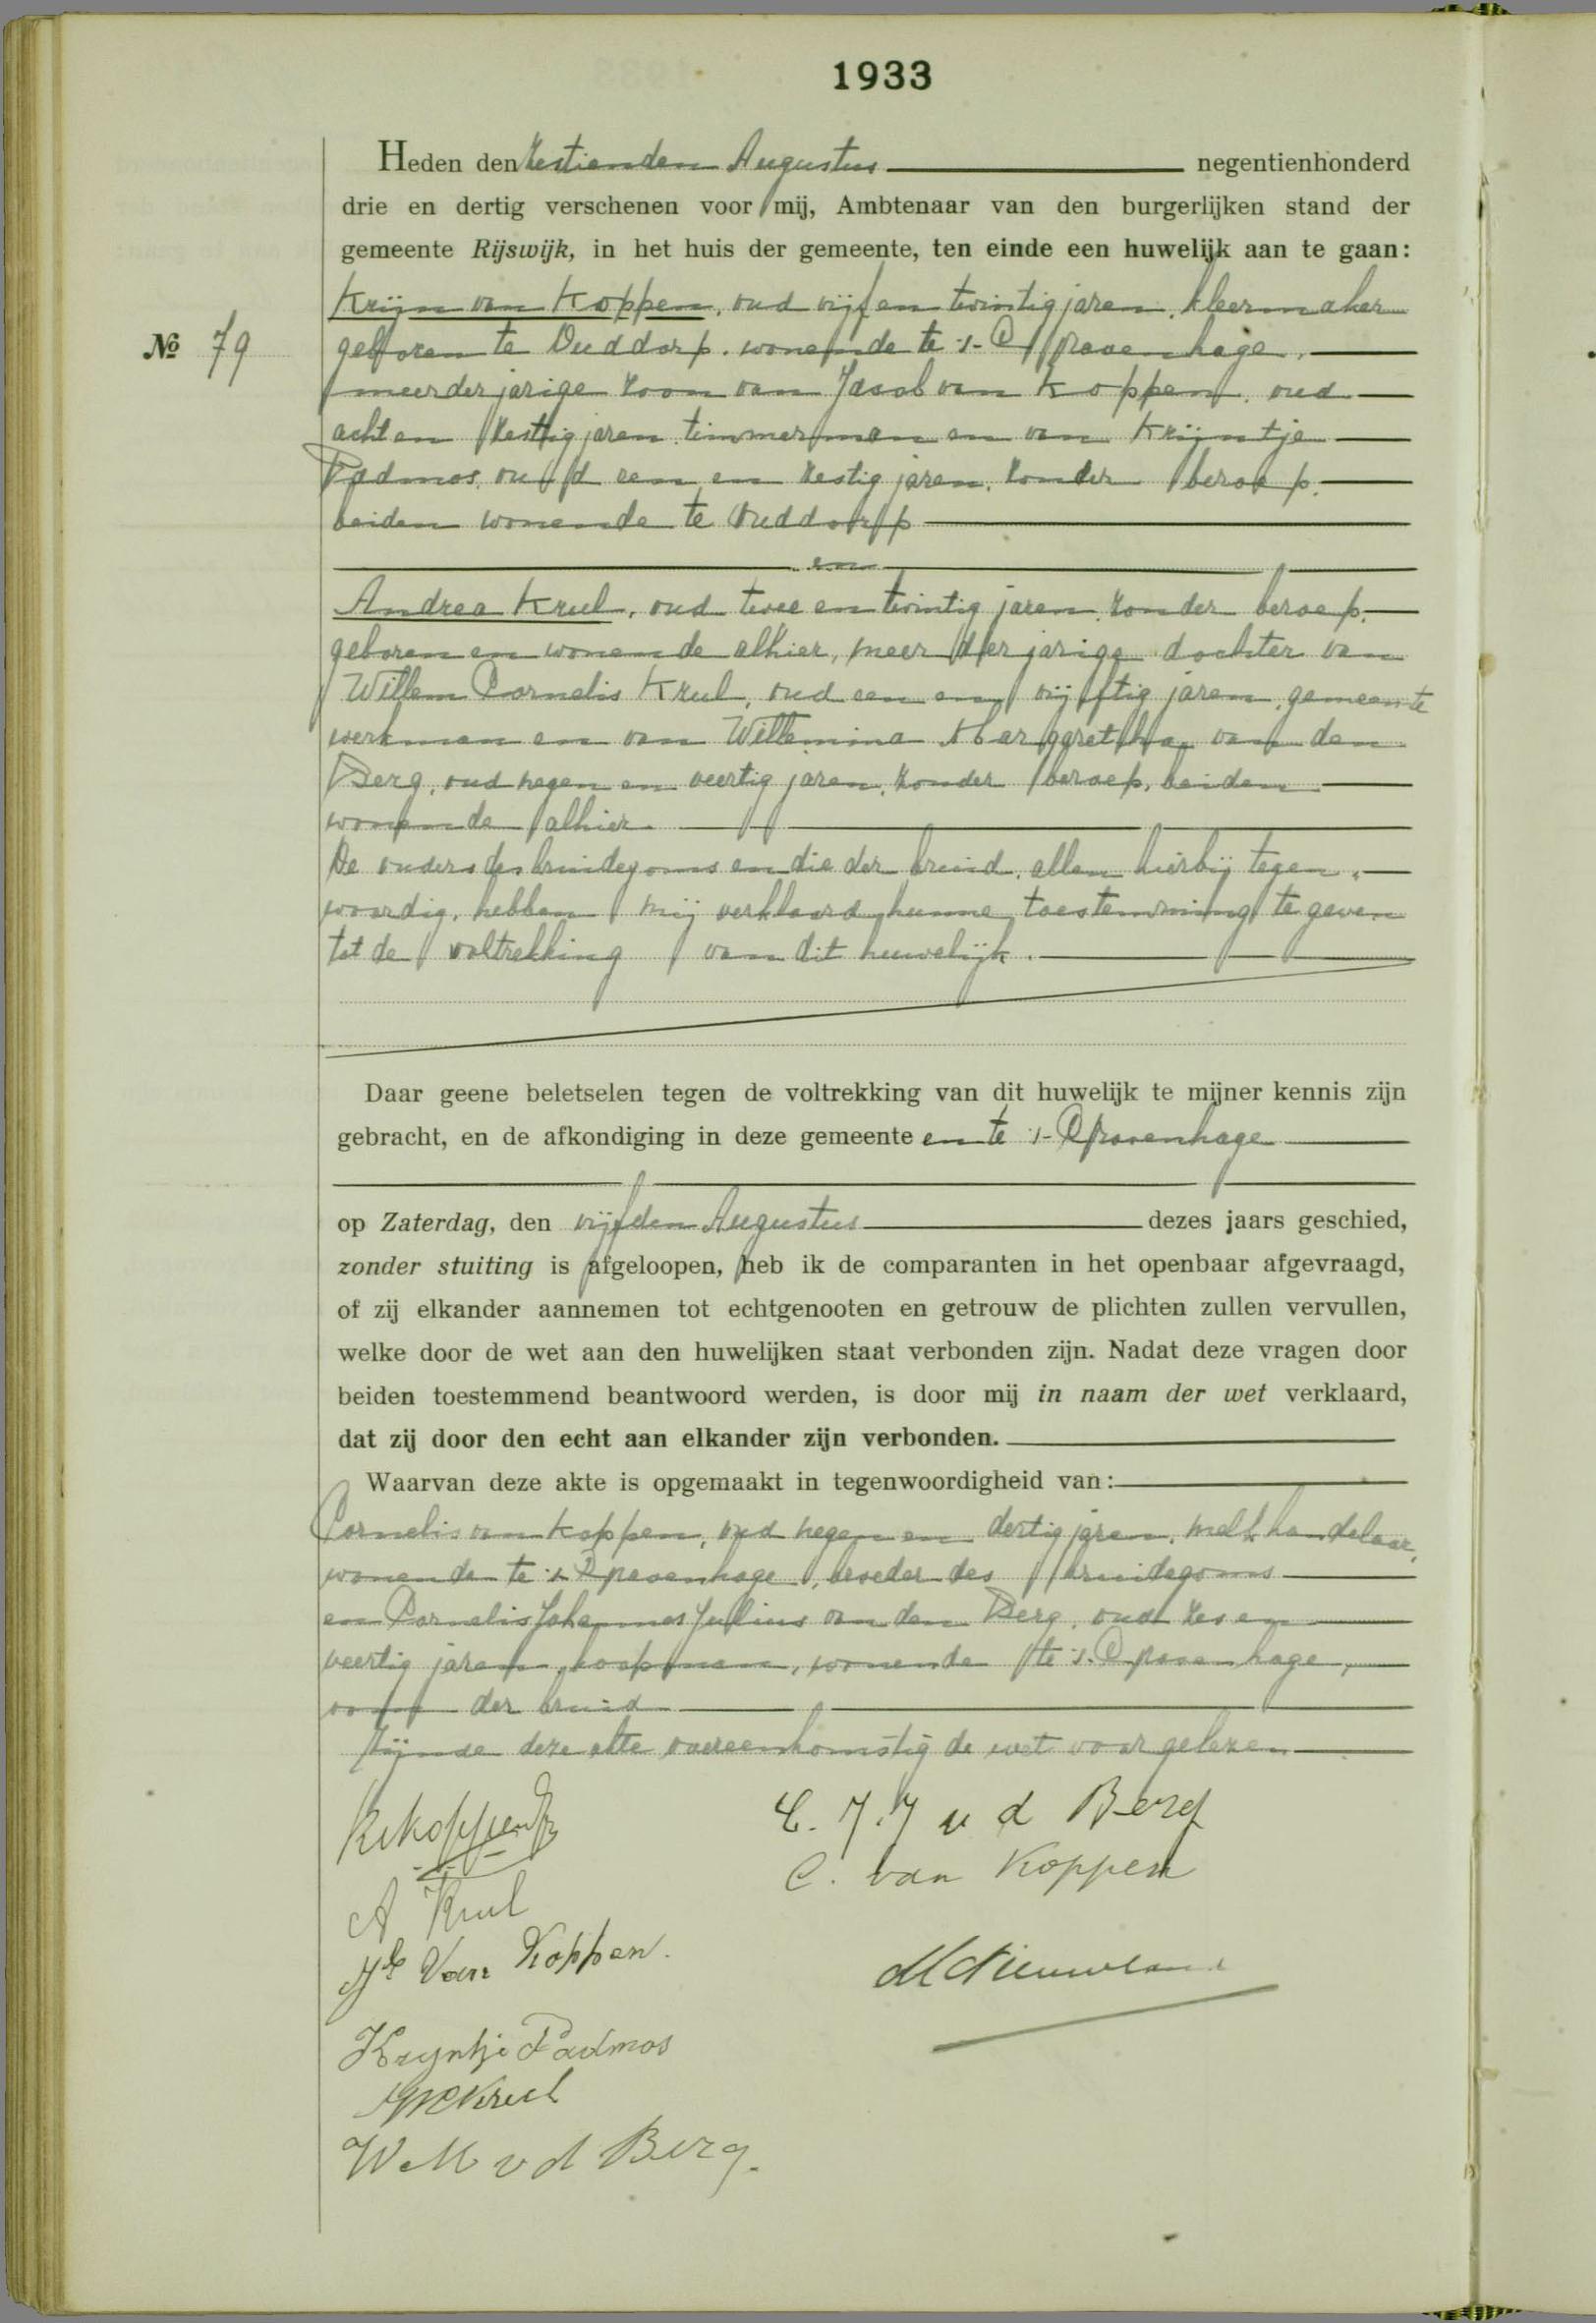 1933
Heden den zestienden Augustus negentienhonderd
drie en dertig verschenen voor mij, Ambtenaar van den burgerlijken stand der
gemeente Rijswijk, in het huis der gemeente, ten einde een huwelijk aan te gaan:
Krijn van Koppen, oud vijf en twintig jaren, kleermaker
No 79
geboren te Ouddorp, wonende te 's-Gravenhage,
meerderjarige zoon van Jacob van Koppen, oud
acht en zestig jaren, timmerman en van Krijntje
Padmos, oud een en zestig jaren, zonder beroep,
beiden wonende te Ouddorp
en
Andrea Krul, oud twee en twintig jaren, zonder beroep,
geboren en wonende alhier, meerderjarige dochter van
Willem Cornelis Krul, oud een en vijftig jaren, gemeente
werkman en van Willemina Margaretha van den
Berg, oud negen en veertig jaren, zonder beroep, beiden
wonende alhier.
De ouders des bruidegoms en die der bruid, allen hierbij tegen-
woordig, hebben mij verklaard hunne toestemming te geven
tot de voltrekking van dit huwelijk.
Daar geene beletselen tegen de voltrekking van dit huwelijk te mijner kennis zijn
gebracht, en de afkondiging in deze gemeente en te 's-Gravenhage
op Zaterdag, den vijfden Augustus dezes jaars geschied,
zonder stuiting is afgeloopen, heb ik de comparanten in het openbaar afgevraagd,
of zij elkander aannemen tot echtgenooten en getrouw de plichten zullen vervullen,
welke door de wet aan den huwelijken staat verbonden zijn. Nadat deze vragen door
beiden toestemmend beantwoord werden, is door mij in naam der wet verklaard,
dat zij door den echt aan elkander zijn verbonden.
Waarvan deze akte is opgemaakt in tegenwoordigheid van:
Cornelis van Koppen, oud negen en dertig jaren, melkhandelaar,
wonende te 's-Gravenhage, broeder des bruidegoms
en Cornelis Johannes Julius van den Berg, oud zes en
veertig jaren, koopman, wonende te 's-Gravenhage,
oom der bruid
Zijnde deze akte overeenkomstig de wet voorgelezen
KvKoppen Jz
C. J. J v d Berg
C. van Koppen
A Krul
Jb Van Koppen.
M Nieuwland
Kryntje Padmos
WCKrul
W M v d Berg.